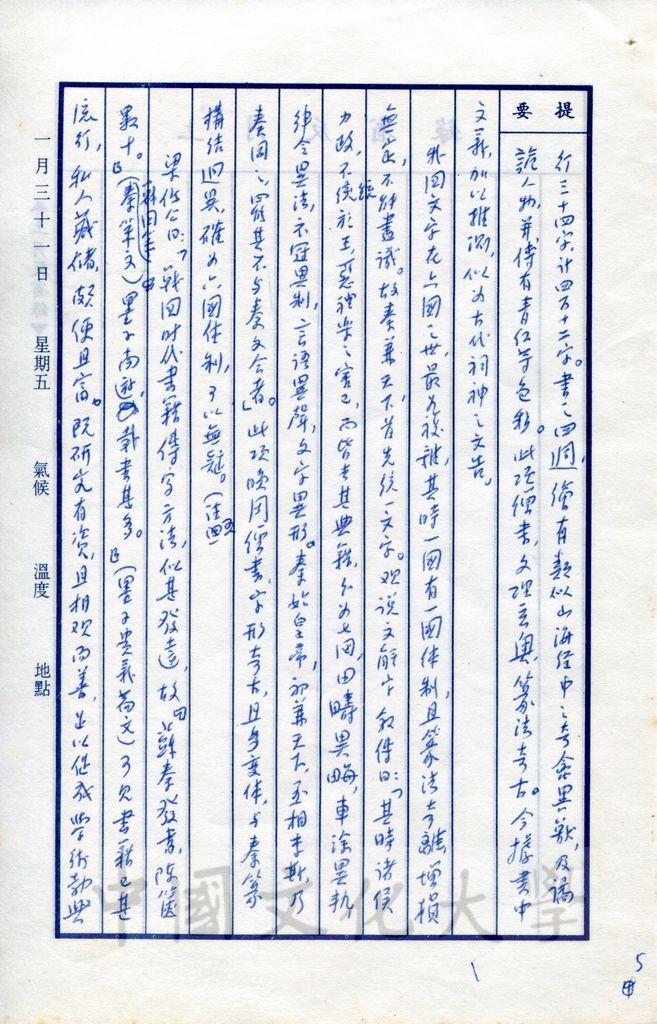 提要
行三十四字,計四百十二字。書之四週,繪有類似山海经中之奇禽異獸,及譎
詭人物,并傅有青红等色彩。此項繒書,文理玄奥,篆法奇古。今據書中
文義,加以推測,似为古代祠神之文告。
我国文字在六國之世,最为複雜,其時一國有一國体制,且篆法奇離,增損
無定,不能盡識。故秦兼天下,首先统一文字。观说文解字叙傳曰:「其時诸侯
力政,不统於王,惡禮樂之害己,而皆去其典籍,分为七国,田疇異畮,車涂異軌,
律令異法,衣冠異制,言語異聲,文字異形。秦始皇帝,初兼天下,丞相李斯,乃
奏同之,罷其不与秦文合者」。此項晚周繒書,字形奇古,且多变体,与秦篆
構结迥異,確为六国体制,可以無疑。
梁任公曰:「戰国时代書籍傳写方法,似甚發達,故曰「蘇秦發書,陳箧
數十。」(秦策文)墨子南遊,載書甚多。」(墨子贵義篇文)可見書籍已甚
流行,私人藏储,頗便且富。既研究有資,且相观而善,足以促成学術勃興
一月三十一日 星期五 氣候 溫度 地點
中國文化大學
1
5